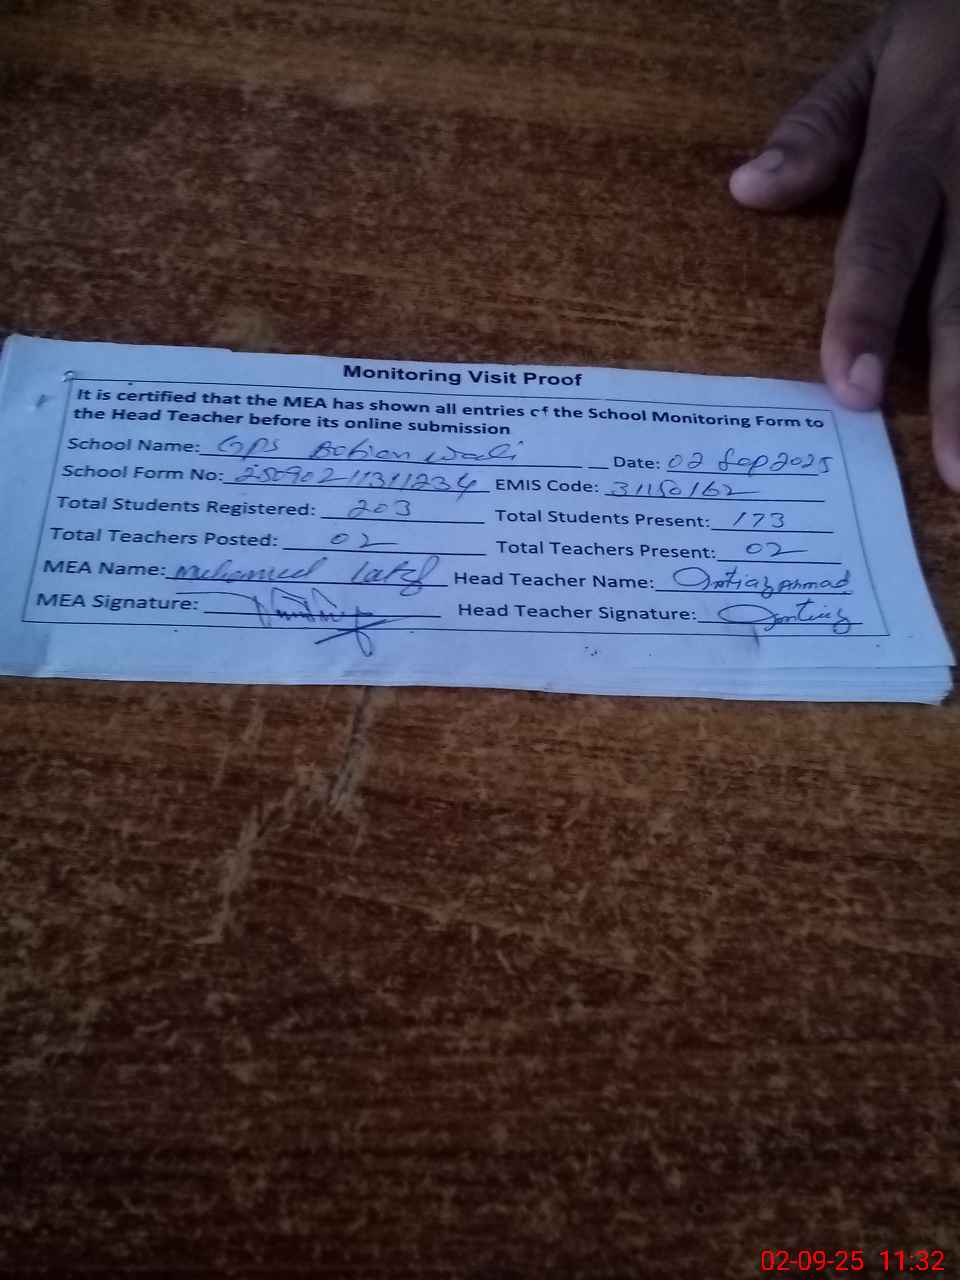 Monitoring Visit Proof
It is certified that the MEA has shown all entries of the School Monitoring Form to
the Head Teacher before its online submission
School Name: GPS Wali Date: 02 Sep 2025
School Form No: 25090211311234 EMIS Code: 31150162
Total Students Registered: 203 Total Students Present: 173
Total Teachers Posted: 02 Total Teachers Present: 02
MEA Name: Muhammed Latif Head Teacher Name: Imtiaz Ahmad
MEA Signature: Head Teacher Signature: Imtiaz
02-09-25 11:32